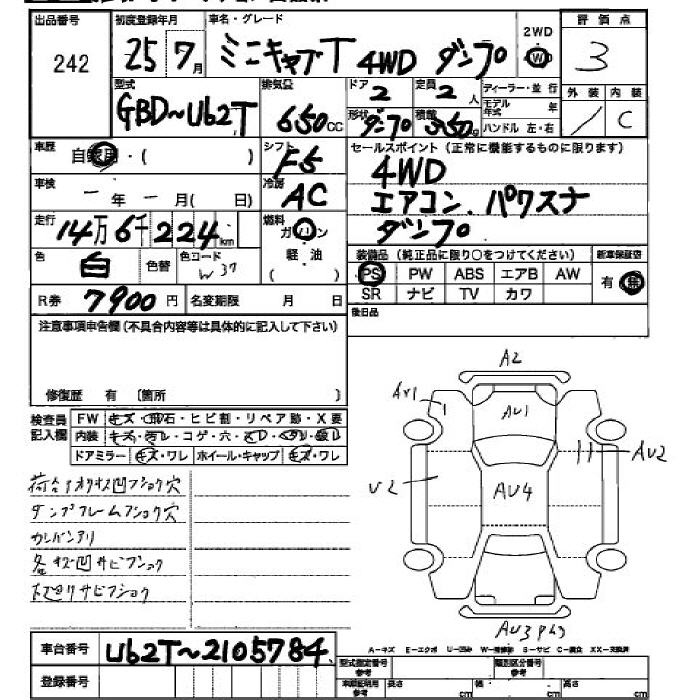 出品番号 初度登録年月 車名・グレード 2WD 評価点
242 25年7月 ミニキャブT 4WD ダンプ W 3
型式 排気公 ドア 定員 ディーラー・並行 外装 内装
2 2人 モデル年式 年
GBD~U62T 650CC 形状 積載 ハンドル 左・右 / C
ダンプ 350kg
車歴 自家用・( ) シフト F5 セールスポイント(正常に機能するものに限ります)
4WD
車検 ー年ー月( 日) 冷房 AC エアコン、パワステ
走行 14万6千224km 燃料 ガソリン ダンプ
色 白 色替 色コード W37 軽・油 装備品(純正品に限り○をつけてください) 新車保証空
( ) PS PW ABS エアB AW 有 無
R券 7900円 名変期限 月 日 SR ナビ TV カワ
注意事項申告欄(不具合内容等は具体的に記入して下さい) 後日品
修復歴 有 〔箇所 〕
検査員記入欄 FW キズ・飛石・ヒビ割・リペア跡・X要
内装 キズ・汚レ・コゲ・穴・
ドアミラー キズ・ワレ ホイール・キャップ キズ・ワレ
A2
AY1 AU1
U2 AU4 AU2
荷台
ダンプフレームフショク穴
各キズ凹サビフショク
下廻リサビフショク
AU3
車台番号 U62T~2105784
A-キズ E-エクボ U-凹み S-サビ C-腐食 XX-交換済
登録番号 型式指定番号 参考 類別区分番号 参考
参考 長さ cm 幅 cm 高さ cm